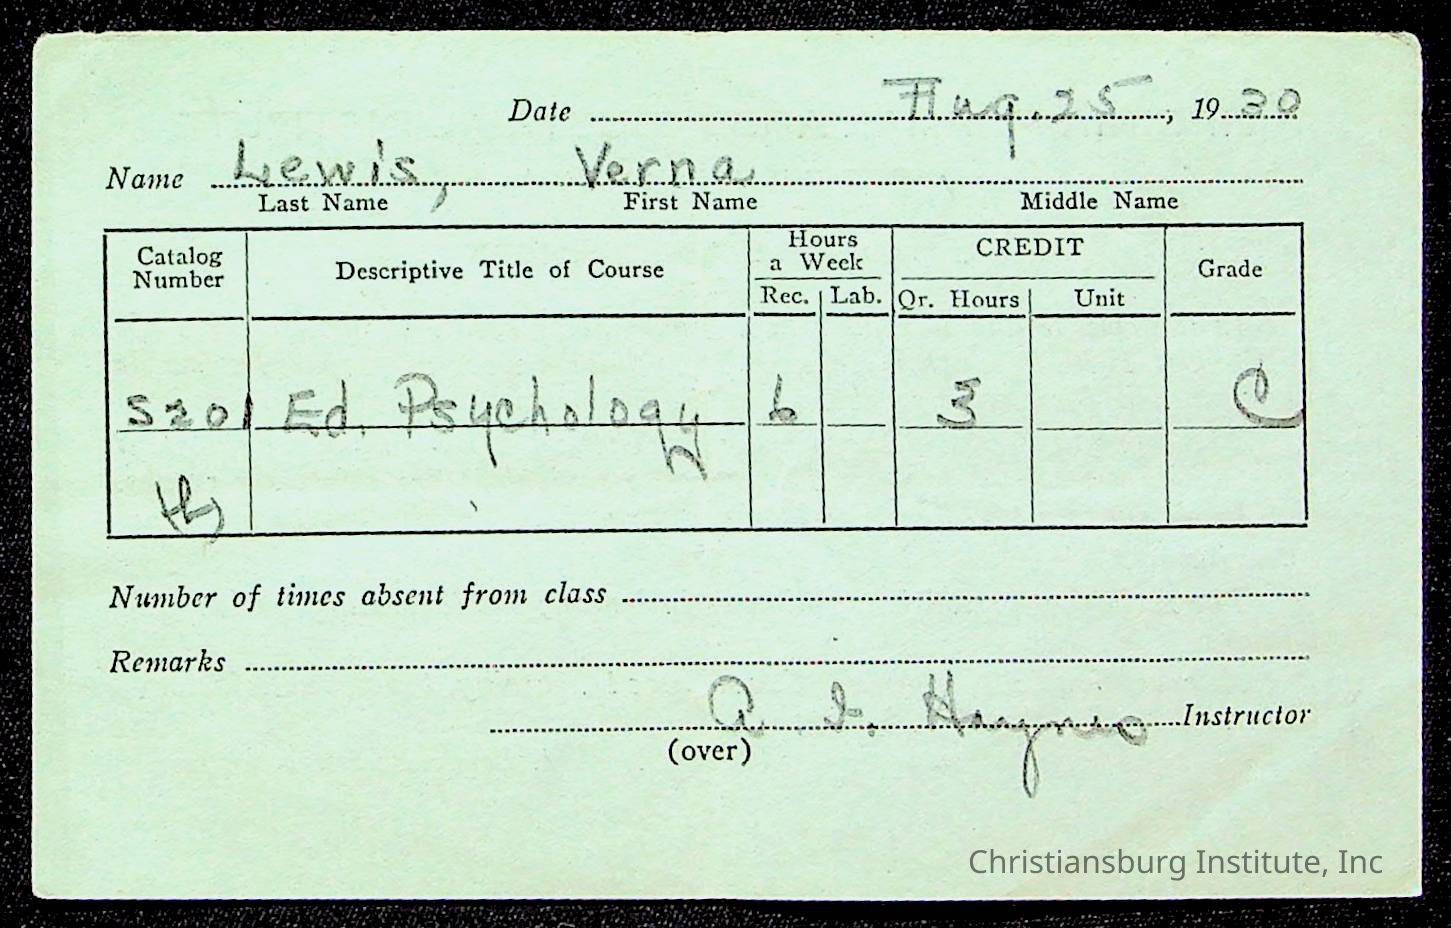 Date Aug. 25, 1930
Name Lewis, Verna
Last Name First Name Middle Name
Catalog Number Descriptive Title of Course Hours a Week CREDIT Grade
Rec. Lab. Qr. Hours Unit
S201 Ed. Psychology 6 3 C
Number of times absent from class
Remarks
A. I. Haynes Instructor
(over)
Christiansburg Institute, Inc